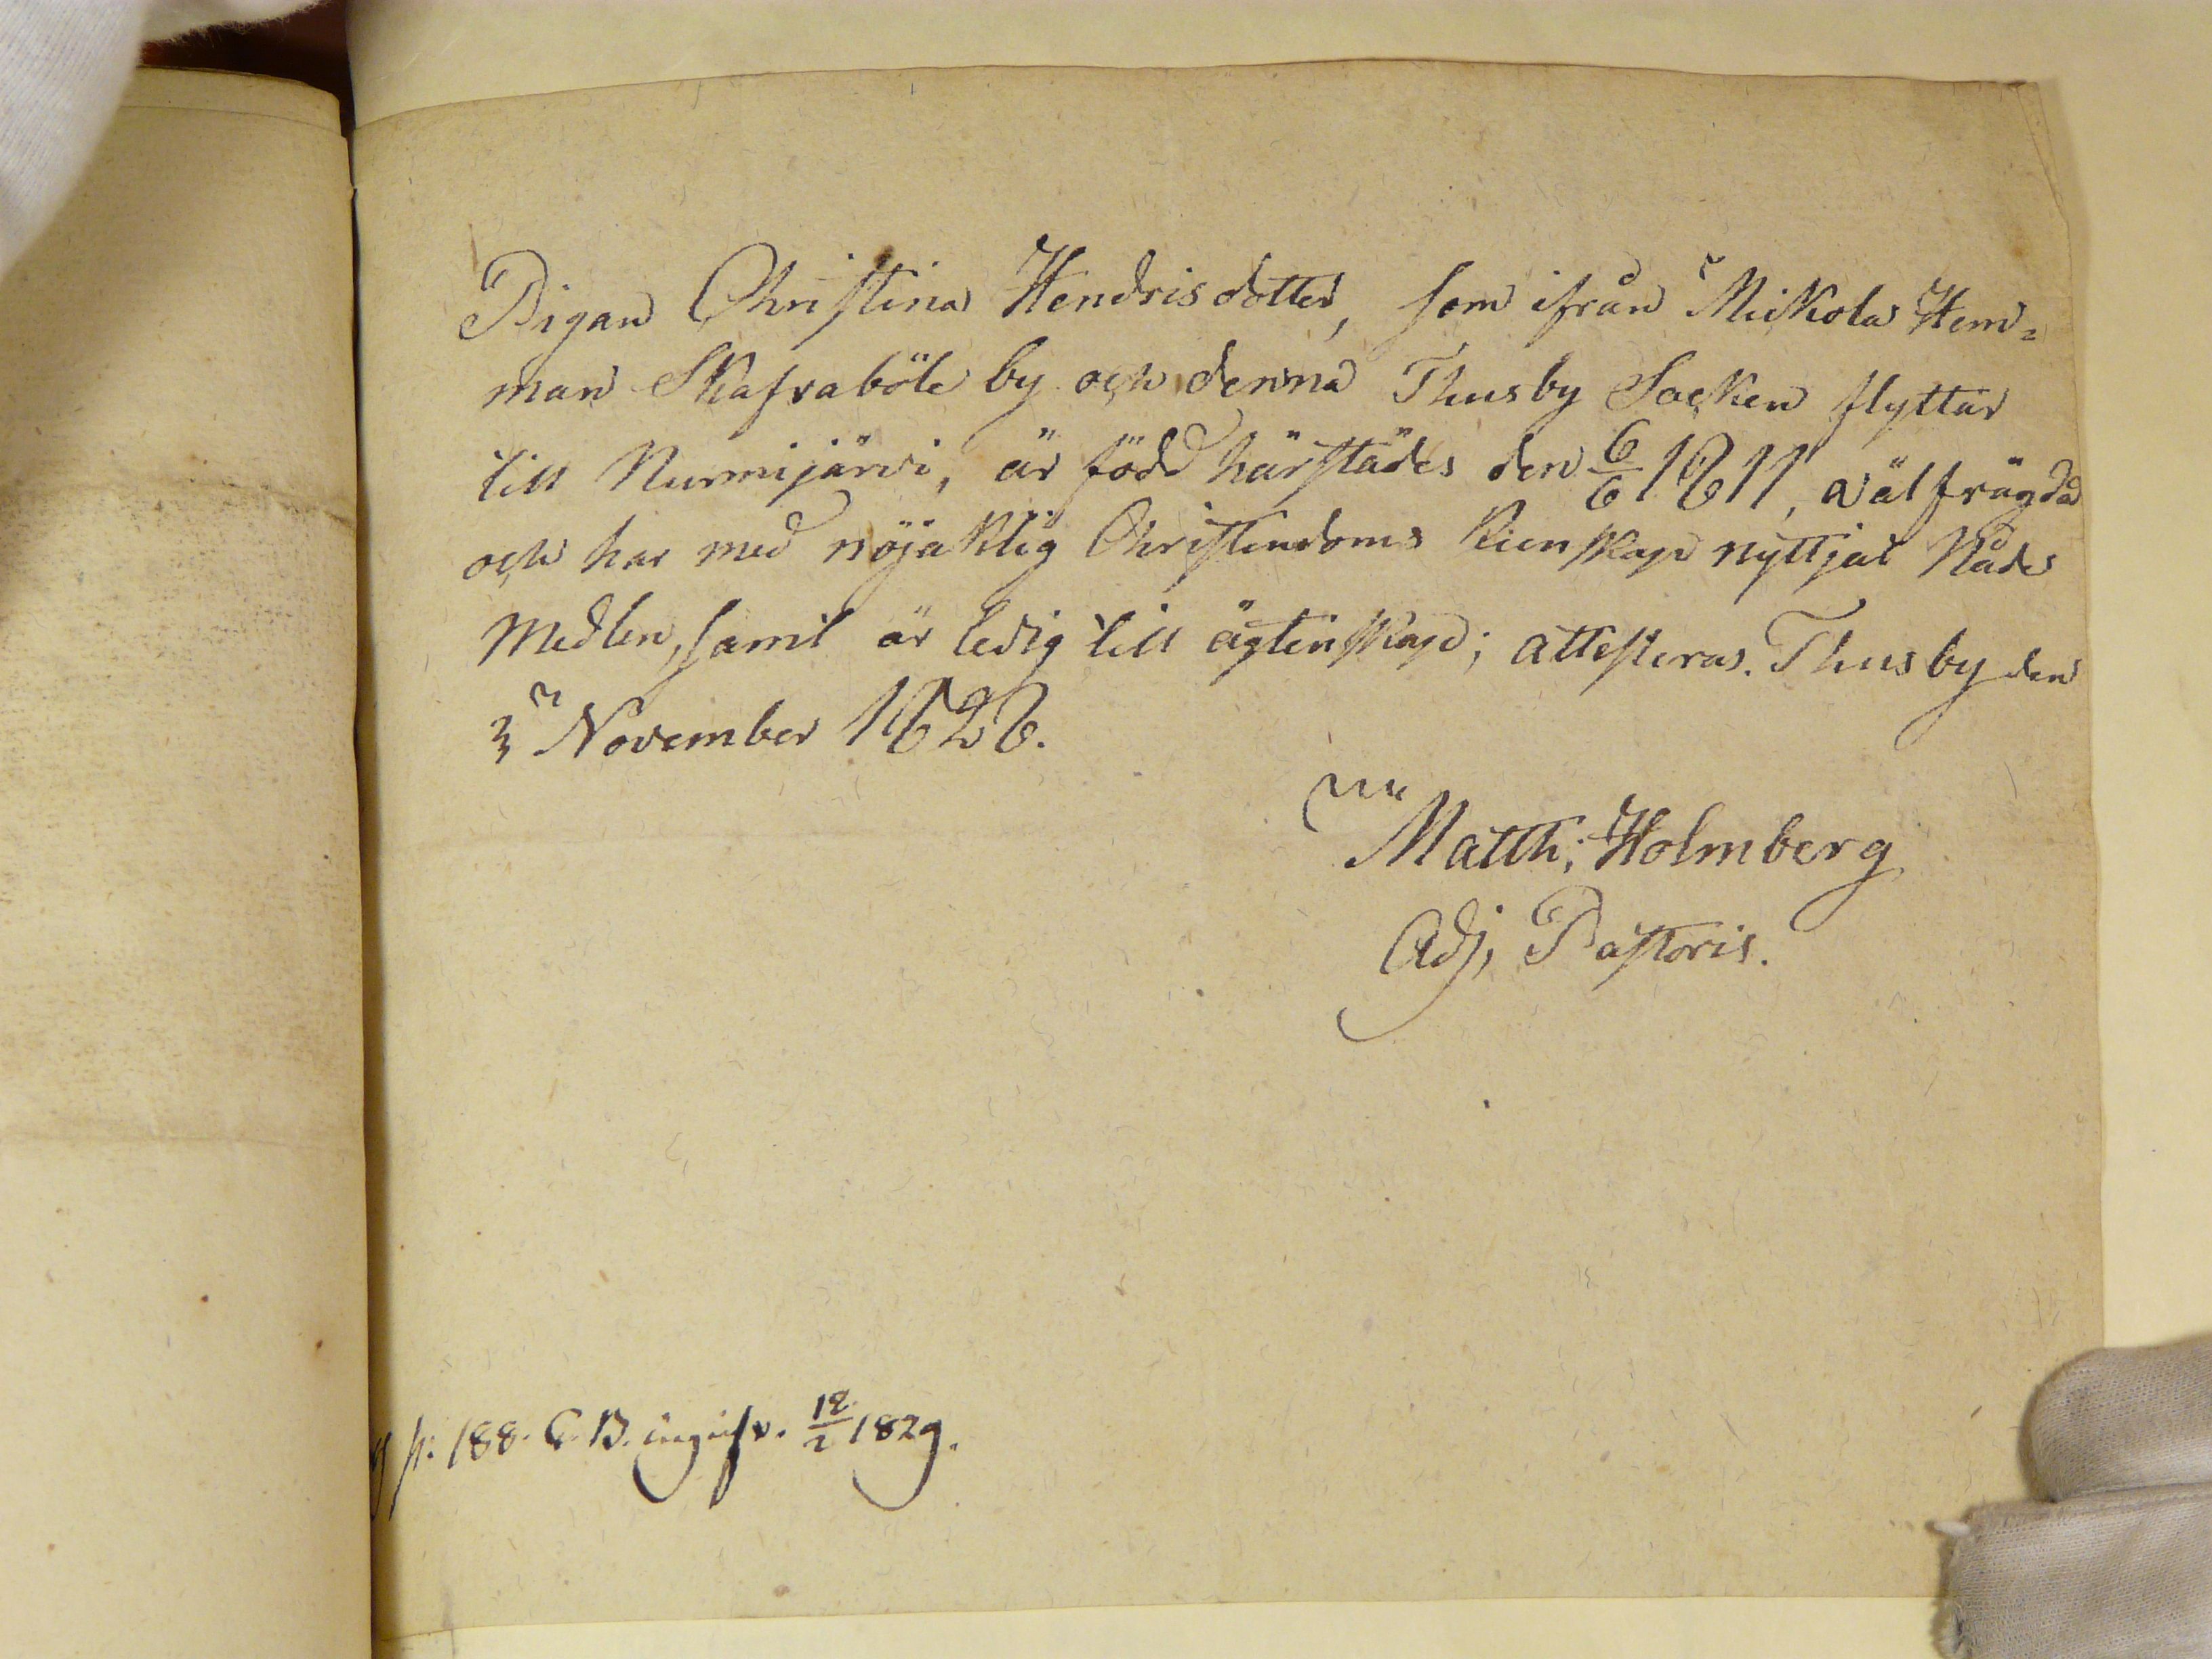 Pigan Christina Hendrisdotter, som ifrån Mickola Hem=
man Skafraböle by och denna Thusby Socken flyttar
till Nurmijärvi, är född härstädes den 6/6 1811, välfrägdad
och har med nöjaktlig Christendoms kienskap nyttjat Nåde
Medlen, samt är ledig till ägtenskap; attesteras. Thusby den
3 November 1828.
Matth: Holmberg
Adj, Pastoris.
p: 188. C. B. ingifv. 12/2 1829.